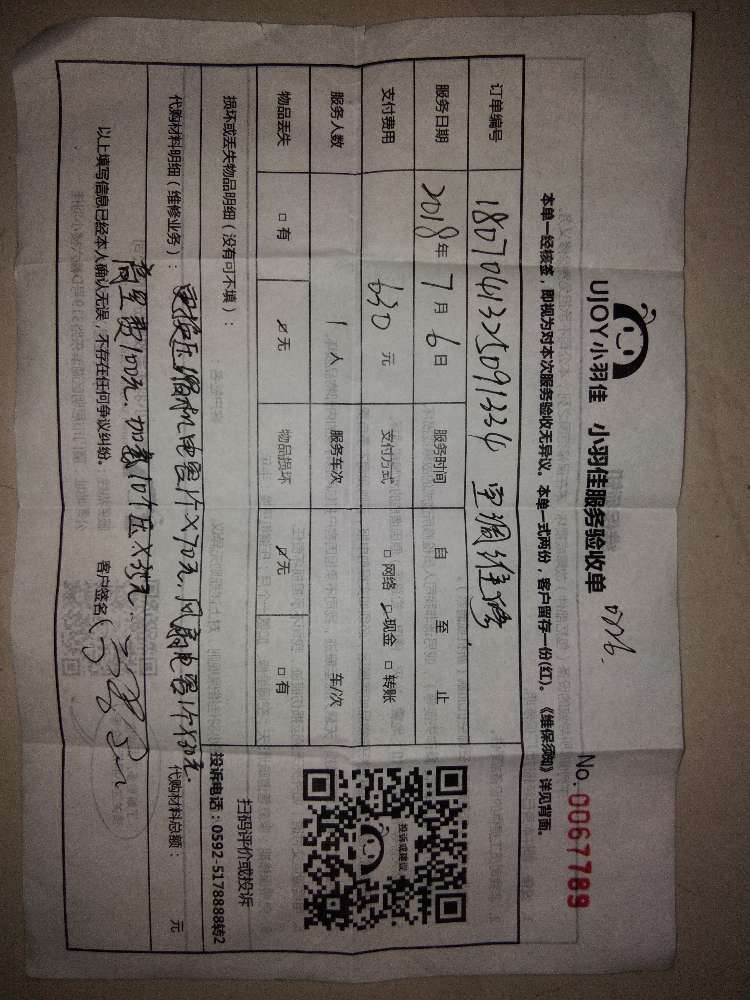 UJOY小羽佳 小羽佳服务验收单
No.0067789
本单一经核签，即视为对本次服务验收无异议。本单一式两份，客户留存一份(红)。《维保须知》详见背面。
订单编号 1807041325091334 空调维修
服务日期 2018年7月6日 服务时间 自 至 止
支付费用 630元 支付方式 □网络 ☑现金 □转账
服务人数 1人 服务车次 车/次
物品丢失 □有 ☑无 物品损坏 ☑无 □有
投诉或建议
扫码评价或投诉
投诉电话：0592-5178888转2
损坏或丢失物品明细（没有可不填）：
代购材料明细（维修业务）：更换压缩机电容1个X70元.风扇电容1个X30元. 代购材料总额： 元
高空费100元.加氟10个压X35元.
以上填写信息已经本人确认无误，不存在任何争议纠纷。 客户签名